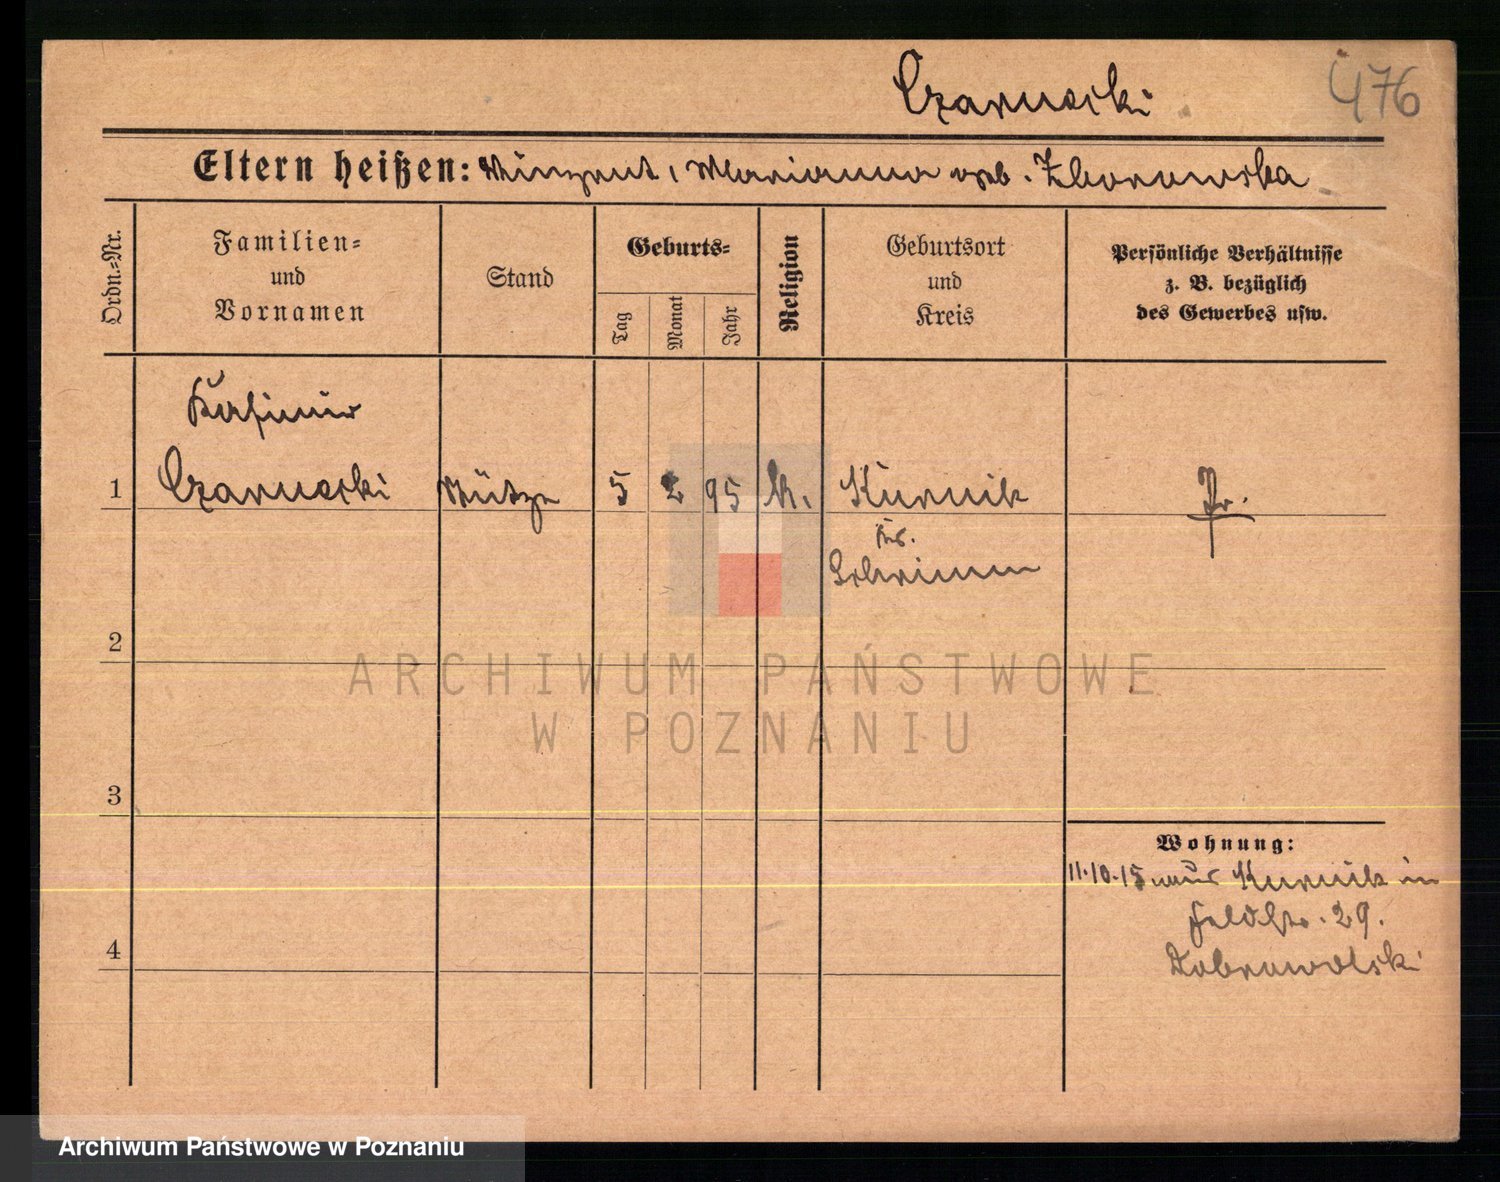 Czarnecki
476
Eltern heißen: Vinzent, Marianna geb. Zborowska
Ordn.=Nr.
Familien=
und
Vornamen
Stand
Geburts=
Tag
Monat
Jahr
Religion
Geburtsort
und
Kreis
Persönliche Verhältnisse
z. B. bezüglich
des Gewerbes usw.
Kasimir
1 Czarnecki 5 2 95 k. Kurnik Pr.
Krs.
Schrimm
2
ARCHIWUM PAŃSTWOWE
W POZNANIU
3
Wohnung:
11.10.15 aus Kurnik in
Feldstr. 29.
4
Dobrowolski
Archiwum Państwowe w Poznaniu